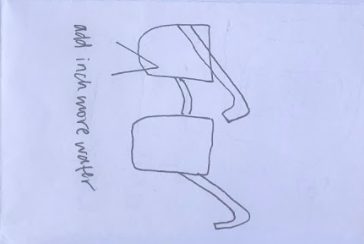 add inch more water